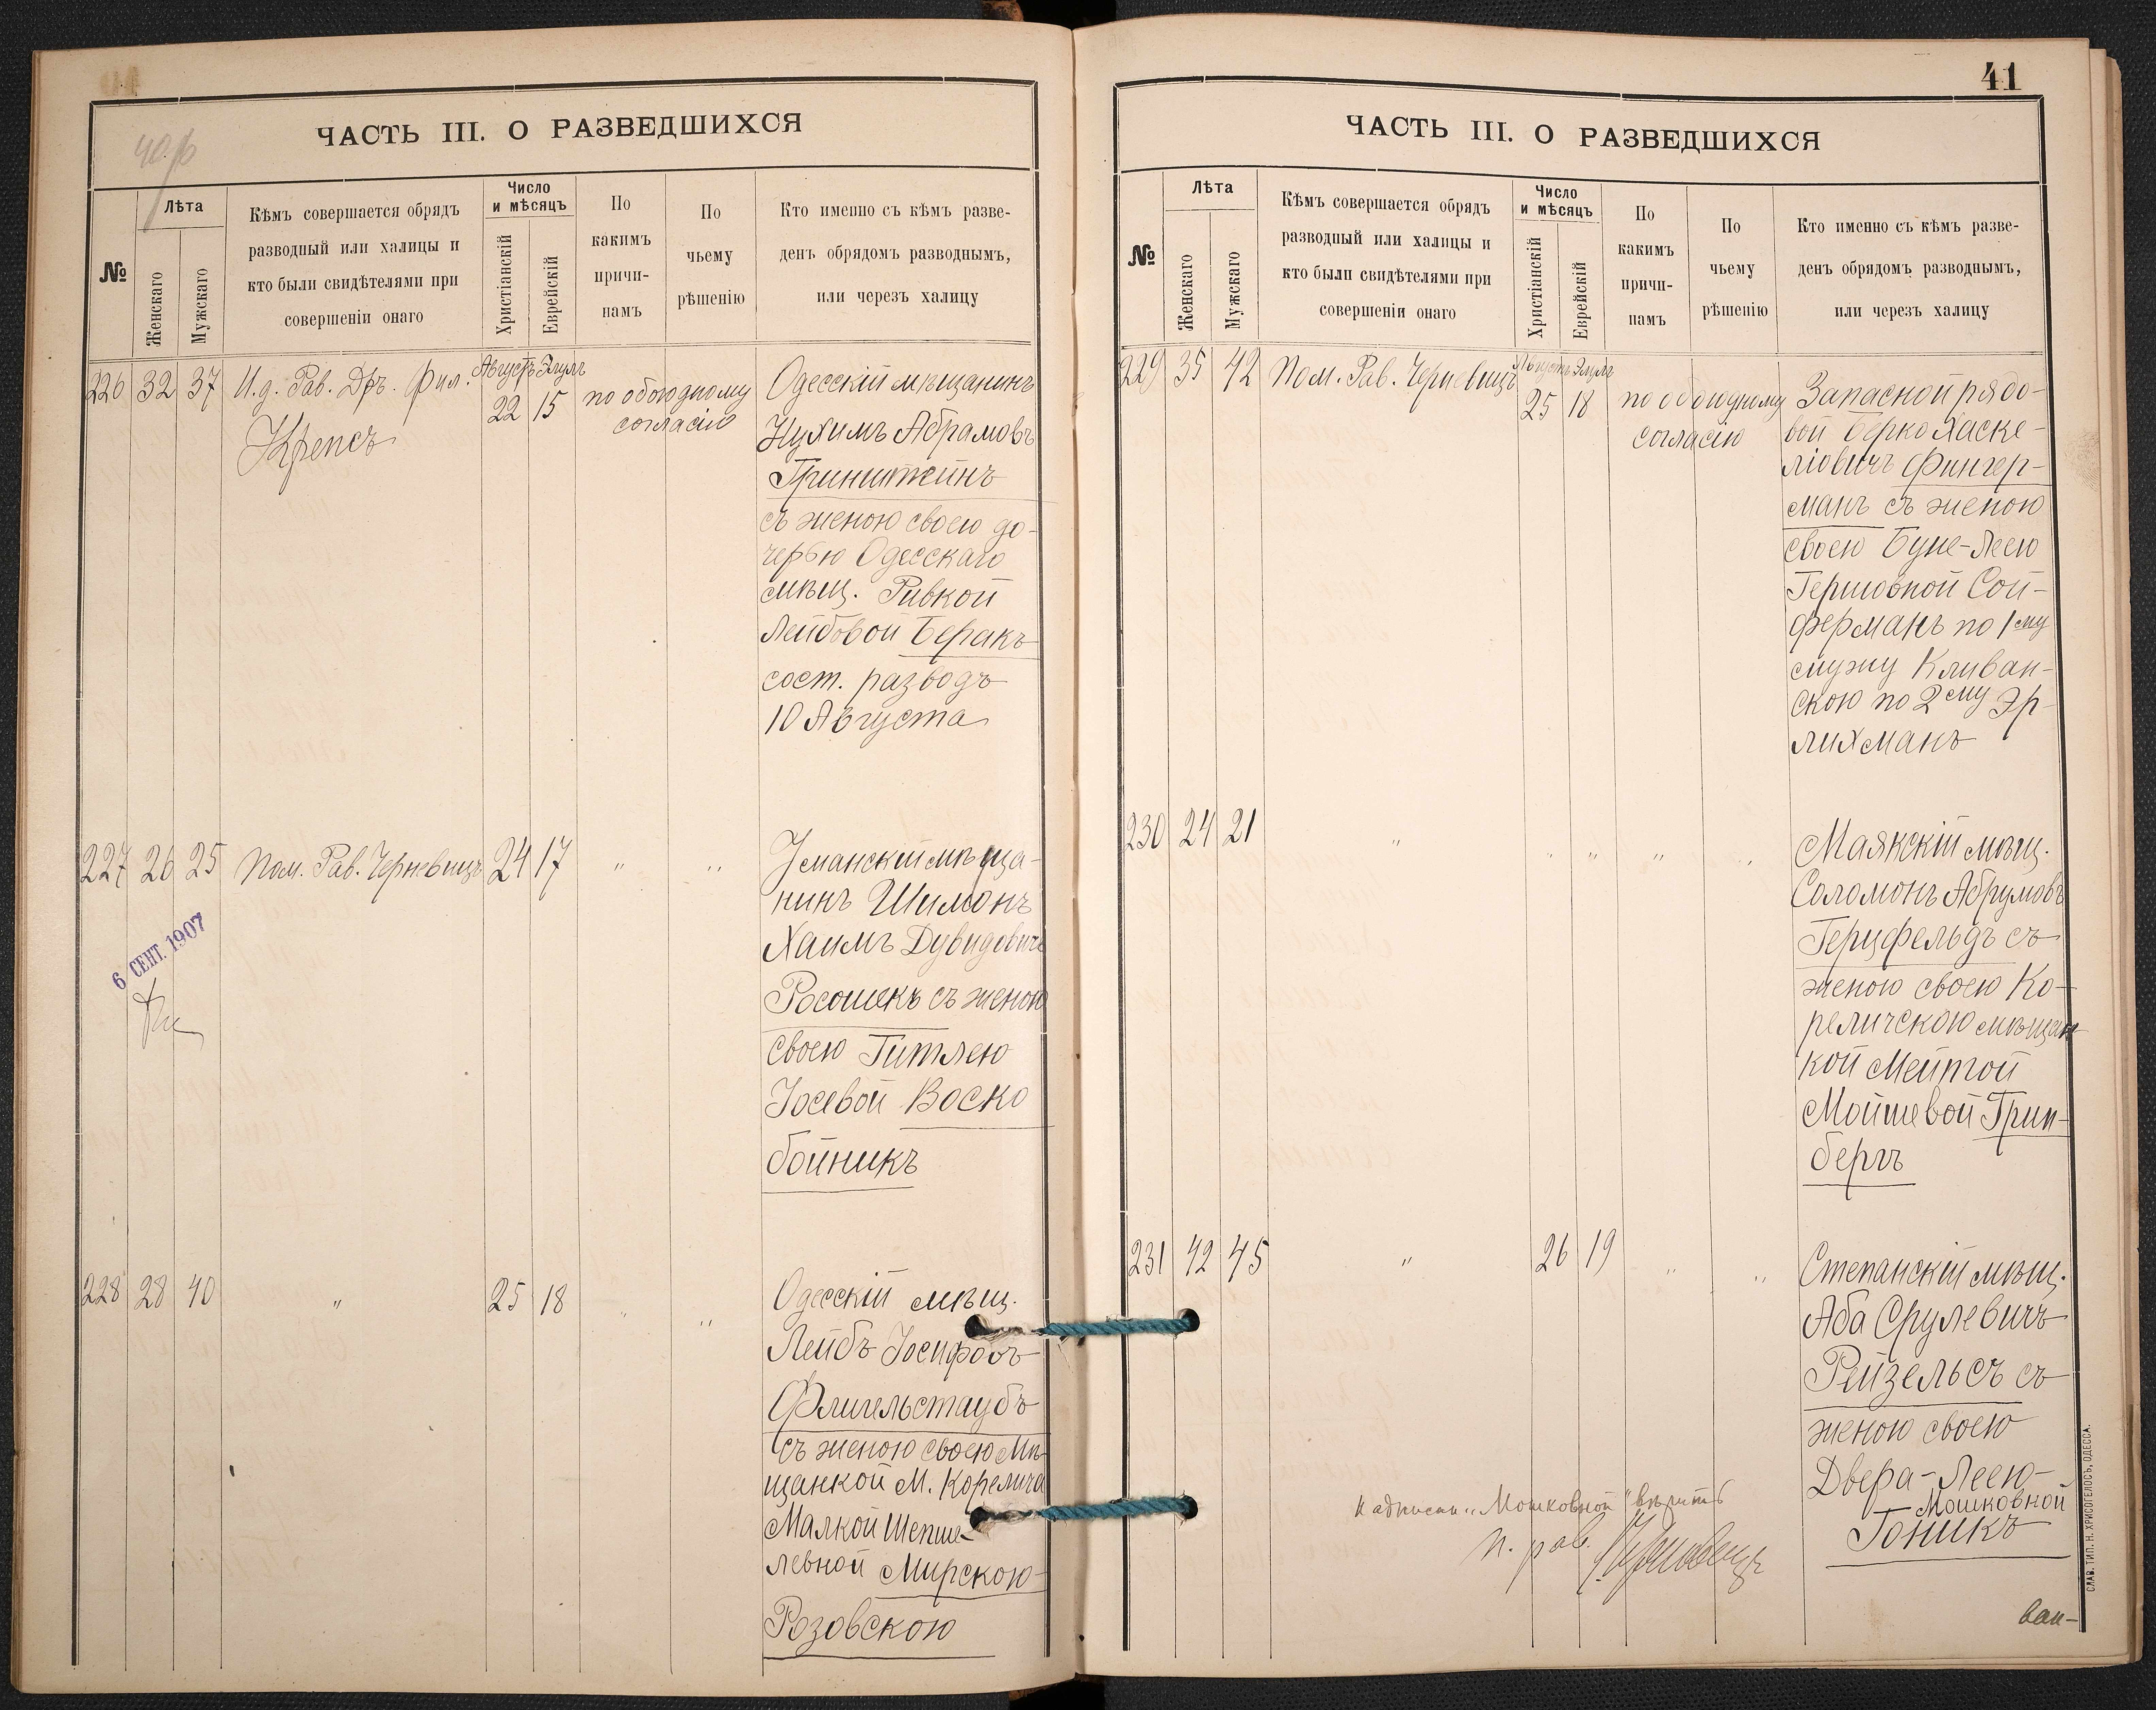 40 об
ЧАСТЬ III. О РАЗВЕДШИХСЯ
№
Лѣта
Женскаго
Мужскаго
Кѣмъ совершается обрядъ
разводный или халицы и
кто были свидѣтелями при
совершеніи онаго
Число
и мѣсяцъ
Христіанскій
Еврейскій
По
какимъ
причи-
памъ
По
чьему
рѣшенію
Кто именно съ кѣмъ разве-
денъ обрядомъ разводнымъ,
или черезъ халицу
226 32 37
И.д. Рав. Дръ. Фил.
Крепсъ
Августъ Элулъ
22 15
по обоюдному
согласію
Одесскій мѣщанинъ
Нухимъ Абрамовъ
Гринштейнъ
съ женою своею до-
черью Одесскаго
мѣщ. Ривкой
Лейбовой Беракъ
сост. разводъ
10 Августа
227 26 25
Пом. Рав. Черновецъ
24 17
" "
Уманскій мѣща-
нинъ Шимонъ
Хаимъ Дувидовичъ
Росошекъ съ женою
своею Гитлею
Іосевой Воско
бойникъ
6 СЕНТ. 1907
228 28 40
"
25 18
" "
Одесскій мѣщ.
Лейбъ Іосифовъ
Флигельстаубъ
съ женою своею Мѣ-
щанкой М. Корелича
Малкой Шепше-
левной Мирскою-
Розовскою
41
ЧАСТЬ III. О РАЗВЕДШИХСЯ
№
Лѣта
Женскаго
Мужскаго
Кѣмъ совершается обрядъ
разводный или халицы и
кто были свидѣтелями при
совершеніи онаго
Число
и мѣсяцъ
Христіанскій
Еврейскій
По
какимъ
причи-
памъ
По
чьему
рѣшенію
Кто именно съ кѣмъ разве-
денъ обрядомъ разводнымъ,
или черезъ халицу
229 35 42
Пом. Рав. Черновецъ
Августъ Элулъ
25 18
по обоюдному
согласію
Запасной рядо-
вой Берко Хаске-
ліовичъ Фингер-
манъ съ женою
своею Буне-Леею
Гершовной Сой-
ферманъ по 1му
мужу Кливан-
скою по 2му Эр-
лихманъ
230 24 21
" " " " "
Маякскій мѣщ.
Соломонъ Абрумовъ
Герцфельдъ съ
женою своею Ко-
реличскою мѣщан
кой Мейтой
Мойшевой Грин-
бергъ
231 42 45
"
26 19
" "
Степанскій мѣщ.
Аба Срулевичъ
Рейзельсъ съ
женою своею
Двера-Леею-
Мошковной
Гоникъ
Надписан. "Мошковной" вѣрить
П. рав. Черновецъ
ван-
СЛАВ. ТИП. Н. ХРИСОГЕЛОСЪ, ОДЕССА.